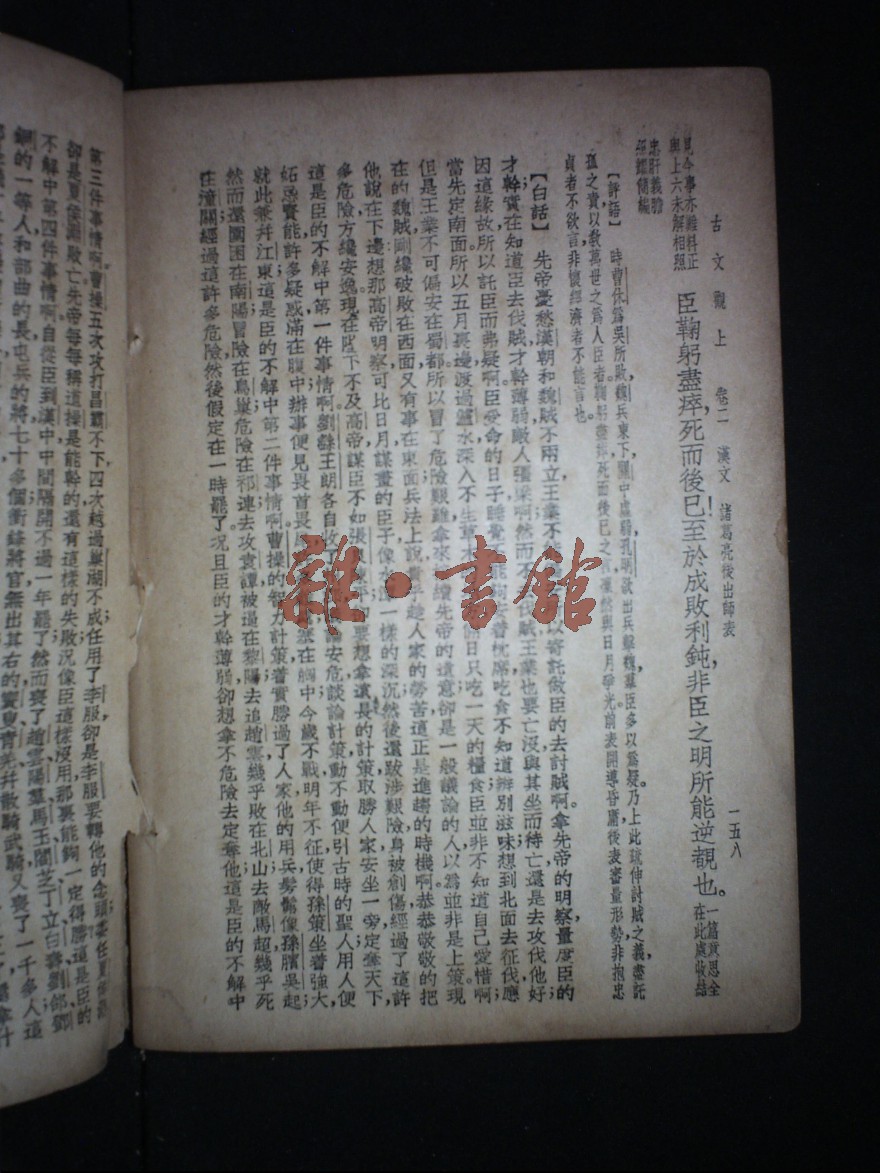 古文觀止 卷二 漢文 諸葛亮後出師表 一五八
見今事亦難料正
與上六未解相照
臣鞠躬盡瘁，死而後已！至於成敗利鈍，非臣之明所能逆覩也。
一篇意思全
在此處收結
忠肝義膽
【評語】時曹休爲吳所敗，魏兵東下，關中虛弱，孔明欲出兵擊魏，羣臣多以爲疑，乃上此疏，伸討賊之義，盡託
孤之責，以教萬世之爲人臣者。鞠躬盡瘁死而後已之言，凜然與日月爭光。前表開導昏庸，後表審量形勢，非抱忠
貞者不欲言，非懷經濟者不能言也。
【白話】先帝憂愁漢朝和魏賊不兩立，王業不以寄託做臣的去討賊啊拿先帝的明察量度臣的
才幹，實在知道臣去伐賊才幹薄弱敵人强梁啊然而不伐賊王業也要亡沒與其坐而待亡還是去攻伐他好
因這緣故所以託臣而弗疑啊臣受命的日子睡覺不能夠着枕席吃食不知道辨別滋味想到北面去征伐應
當先定南面所以五月裏邊渡過瀘水深入不生草木日只吃一天的糧食臣並非不知道自己愛惜啊
但是王業不可偏安在蜀都所以冒了危險艱難拿來繼續先帝的遺意卻是一般議論的人以爲並非是上策現
在的魏賊剛纔破敗在西面又有事在東面兵法上說貴乎趁人家的勞苦這正是進趨的時機啊恭恭敬敬的把
他說在下邊想那高帝明察可比日月謀畫的臣子像一樣的深沉然後還跋涉艱險身被創傷經過了這許
多危險方纔安逸現在陛下不及高帝謀臣不如張要想拿遠長的計策取勝人家安坐一旁定奪天下
這是臣的不解中第一件事情啊劉繇王朗各自攻論安危談論計策動不動便引古時的聖人用人便
妬忌賢能許多疑惑滿在腹中辦事便見畏首畏在胸中今歲不戰明年不征使得孫策坐着強大
就此兼并江東這是臣的不解中第二件事情啊曹操的智力計策着實勝過了人家他的用兵髣髴像孫臏吳起
然而還圍困在南陽冒險在烏巢危險在祁連去攻袁譚被逼在黎陽去追趙雲幾乎敗在北山去敵馬超幾乎死
在潼關經過這許多危險然後假定在一時罷了況且臣的才幹薄弱卻想拿不危險去定奪他這是臣的不解中
第三件事情啊曹操五次攻打昌霸不下四次越過巢湖不成任用了李服卻是李服要轉他的念頭委任夏侯
卻是夏侯淵敗亡先帝每每稱道操是能幹的還有這樣的失敗況像臣這樣沒用那裏能夠一定得勝這是臣的
不解中第四件事情啊自從臣到漢中中間隔開不過一年罷了然而喪了趙雲陽羣馬玉閻芝丁立白壽劉郃鄧
銅的一等人和部曲的長屯兵的將七十多個衝鋒將官無出其右的竇叟青羌并散騎武騎又喪了一千多人這